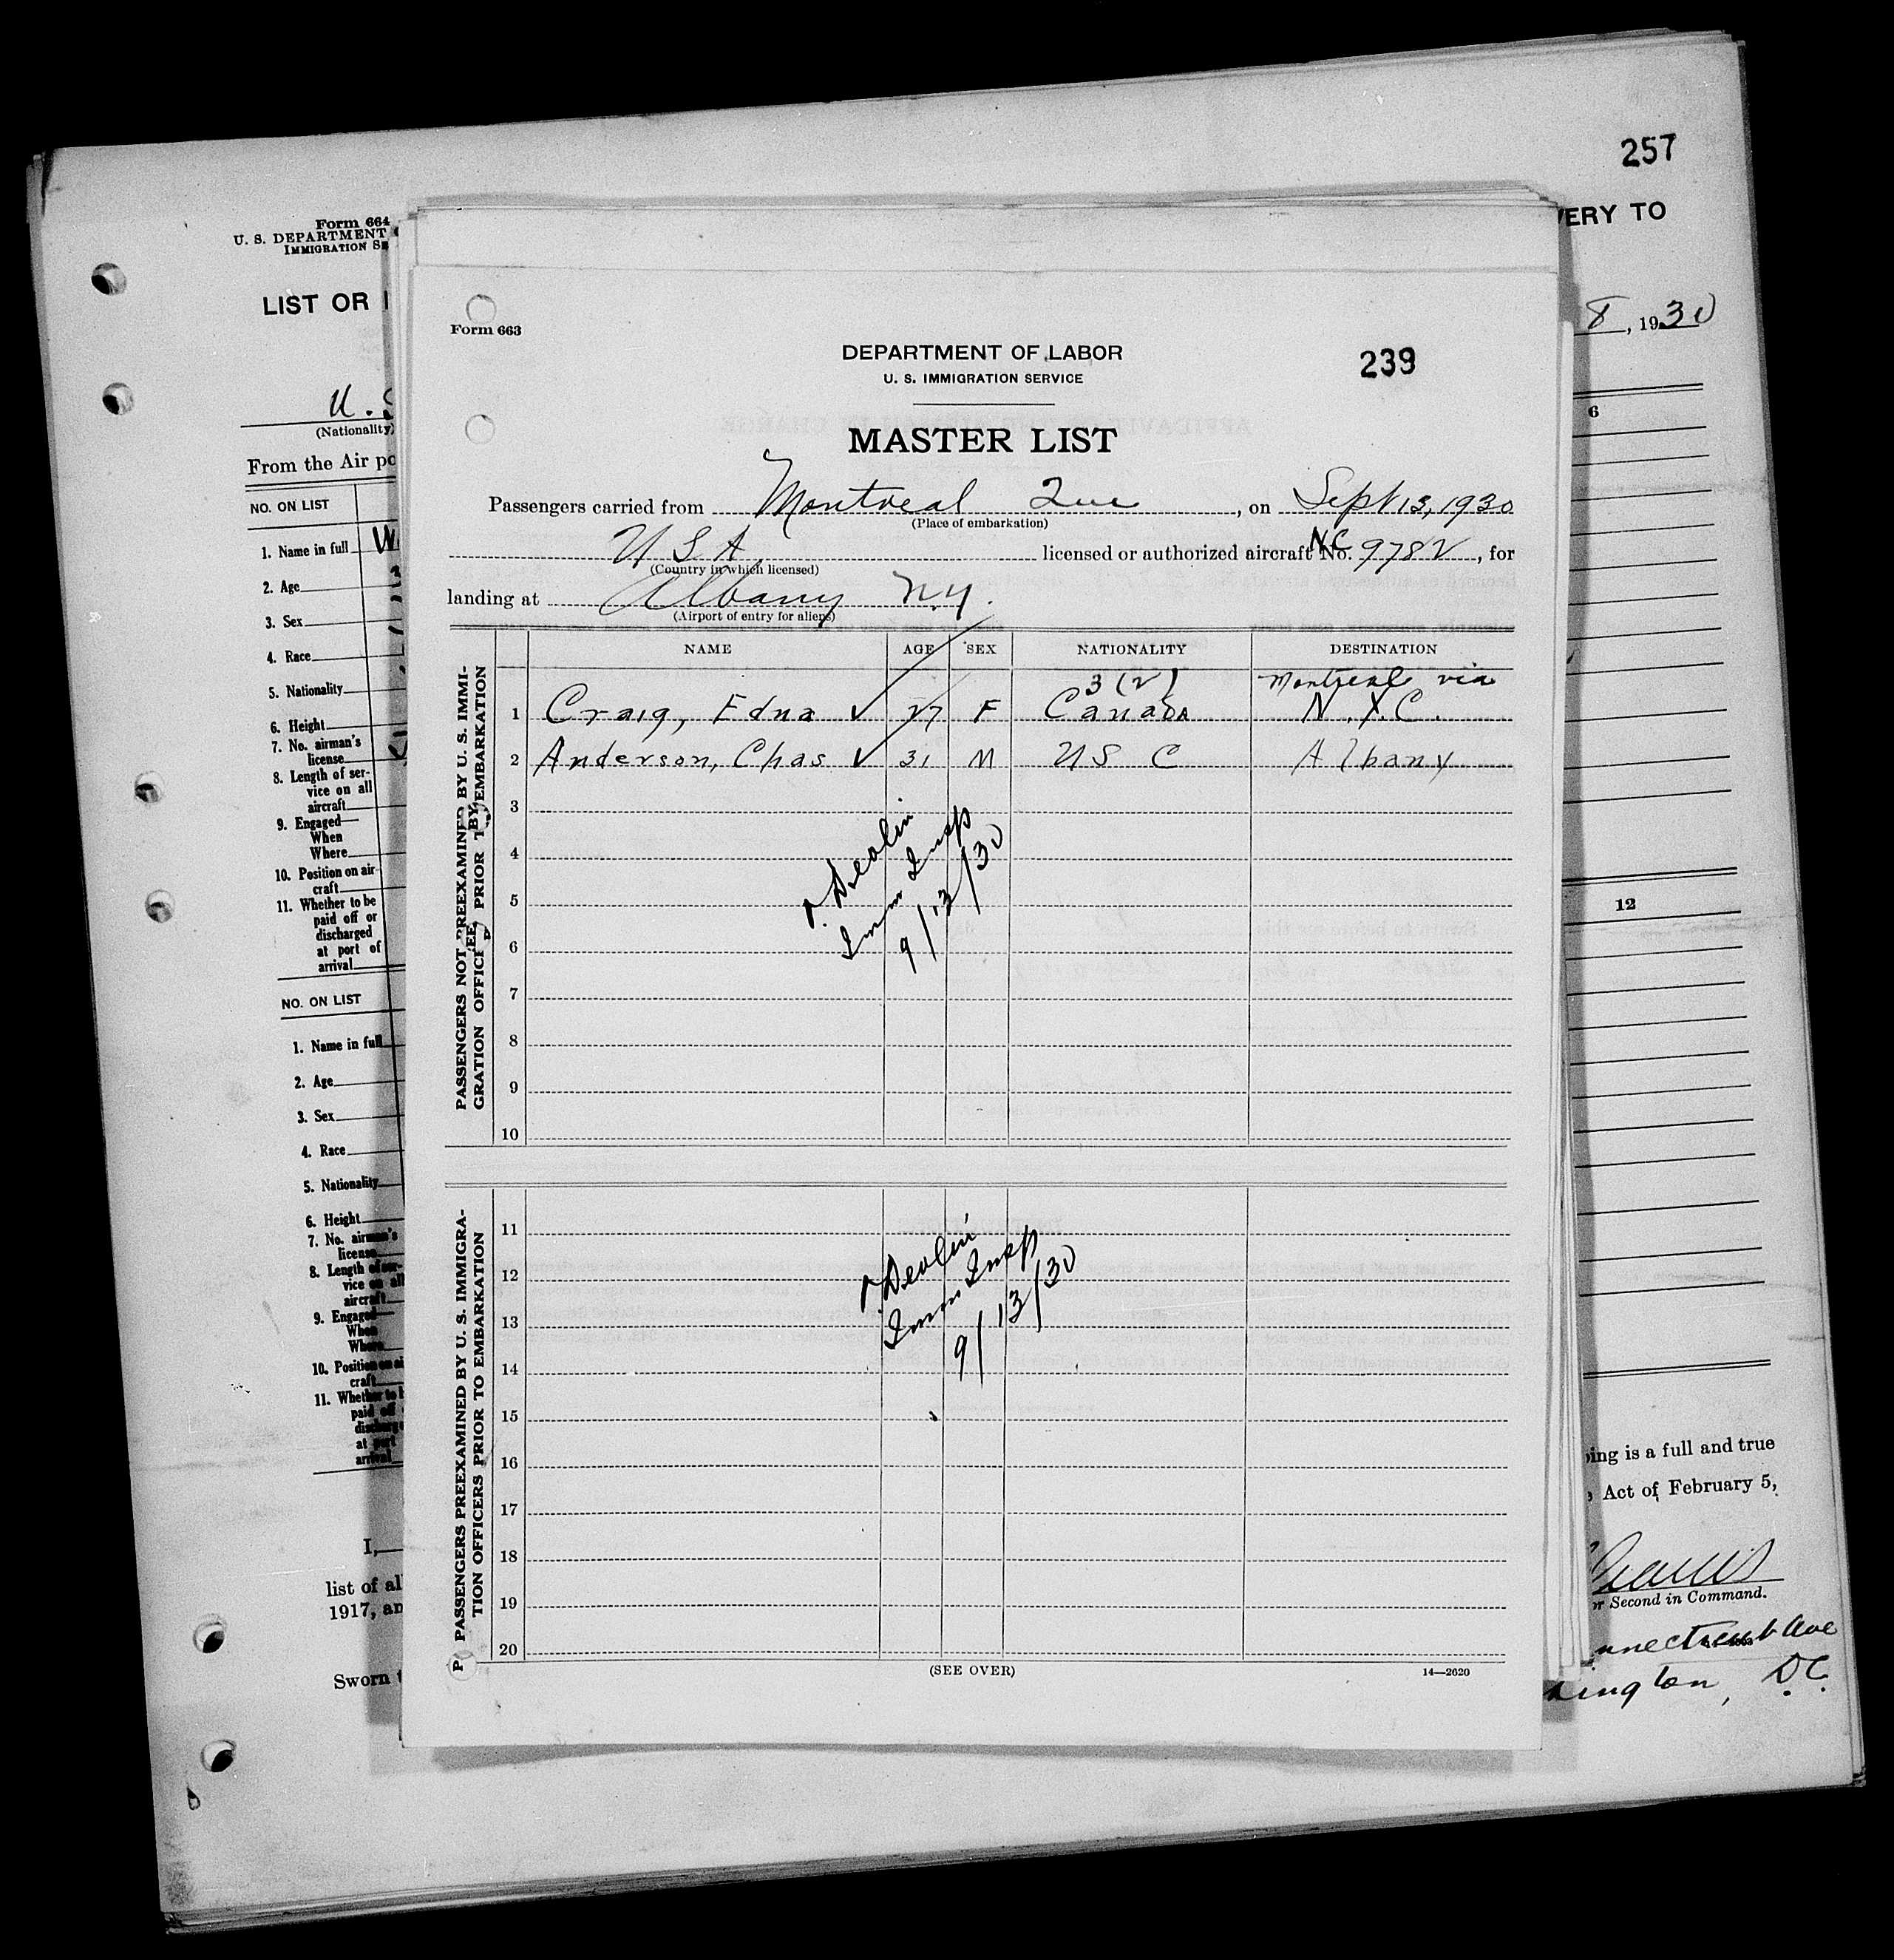 257
Form 664
U. S. DEPARTMENT
IMMIGRATION SE
VERY TO
LIST OR
8, 1930
U. S
(Nationality)
From the Air po
NO. ON LIST
6
1. Name in full W
2. Age
3. Sex
4. Race
5. Nationality
6. Height
7. No. airman's
license
8. Length of ser-
vice on all
aircraft
9. Engaged—
When
Where
10. Position on air-
craft
11. Whether to be
paid off or
discharged
at port of
arrival
12
NO. ON LIST
1. Name in full
2. Age
3. Sex
4. Race
5. Nationality
6. Height
7. No. airman's
license
8. Length of ser-
vice on all
aircraft
9. Engaged—
When
Where
10. Position on air-
craft
11. Whether to be
paid off
discharged
at port
arrival
I,
list of al
1917, an
Sworn t
ing is a full and true
Act of February 5,
or Second in Command.
nnecticut Ave
ington, D.C.
Form 663
DEPARTMENT OF LABOR
U. S. IMMIGRATION SERVICE
239
MASTER LIST
Passengers carried from Montreal Que, on Sept 13, 1930
(Place of embarkation)
USA licensed or authorized aircraft No. NC 978V, for
(Country in which licensed)
landing at Albany N.Y.
(Airport of entry for aliens)
NAME AGE SEX NATIONALITY DESTINATION
3 (2) Montreal via
1 Craig, Edna ✓ 27 F Canada N.Y.C.
2 Anderson, Chas ✓ 31 M US C Albany
3
4
5
6
7
8
9
10
PASSENGERS NOT PREEXAMINED BY U. S. IMMI-
GRATION OFFICER PRIOR TO EMBARKATION
Devlin
Imm Insp
9/13/30
11
12
13
14
15
16
17
18
19
20
PASSENGERS PREEXAMINED BY U. S. IMMIGRA-
TION OFFICERS PRIOR TO EMBARKATION
Devlin
Imm Insp
9/13/30
(SEE OVER)
14—2620